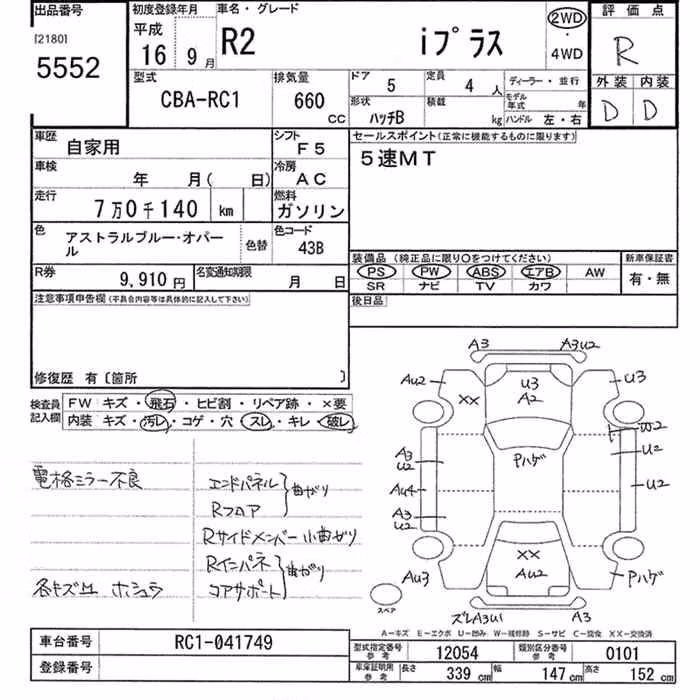 出品番号
[2180]
5552
初度登録年月
平成
16 9 月
車名・グレード
R2 iプラス
2WD
・
4WD
評価点
R
外装 内装
D D
型式
CBA-RC1
排気量
660
CC
ドア
5
定員
4 人
形状
ハッチB
積載
kg
ディーラー・並行
モデル年式 年
ハンドル 左・右
車歴
自家用
シフト
F5
車検
年 月( 日)
冷房
AC
走行
7万0千140 km
燃料
ガソリン
色
アストラルブルー・オパール
色替
色コード
43B
R券
9,910 円
名変通知期限
月 日
セールスポイント(正常に機能するものに限ります)
5速MT
装備品 (純正品に限り○をつけてください)
PS PW ABS エアB AW
SR ナビ TV カワ
新車保証書
有・無
後日品
注意事項申告欄(不具合内容等は具体的に記入して下さい)
修復歴 有〔箇所 〕
検査員記入欄
FW キズ・飛石・ヒビ割・リペア跡・×要
内装 キズ・汚レ・コゲ・穴・スレ・キレ・破レ
電格ミラー不良
各キズ凹 ホシュラ
エンドパネル
Rフロア
曲がり
Rサイドメンバー小曲がり
Rインパネ
コアサポート
曲がり
A3 A3U2
AU2 XX U3 A2 U3
W2
A3 U2
Pハゲ
U2
AU4 U2
A3 U2
XX
AU3 AU2 Pハゲ
スペア
ズレA3U1 A3
A-キズ E-エクボ U-凹み W-補修跡 S-サビ C-腐食 XX-交換済
車台番号
RC1-041749
登録番号
型式指定番号
参考
12054
類別区分番号
参考
0101
車庫証明用
参考
長さ
339 cm
幅
147 cm
高さ
152 cm